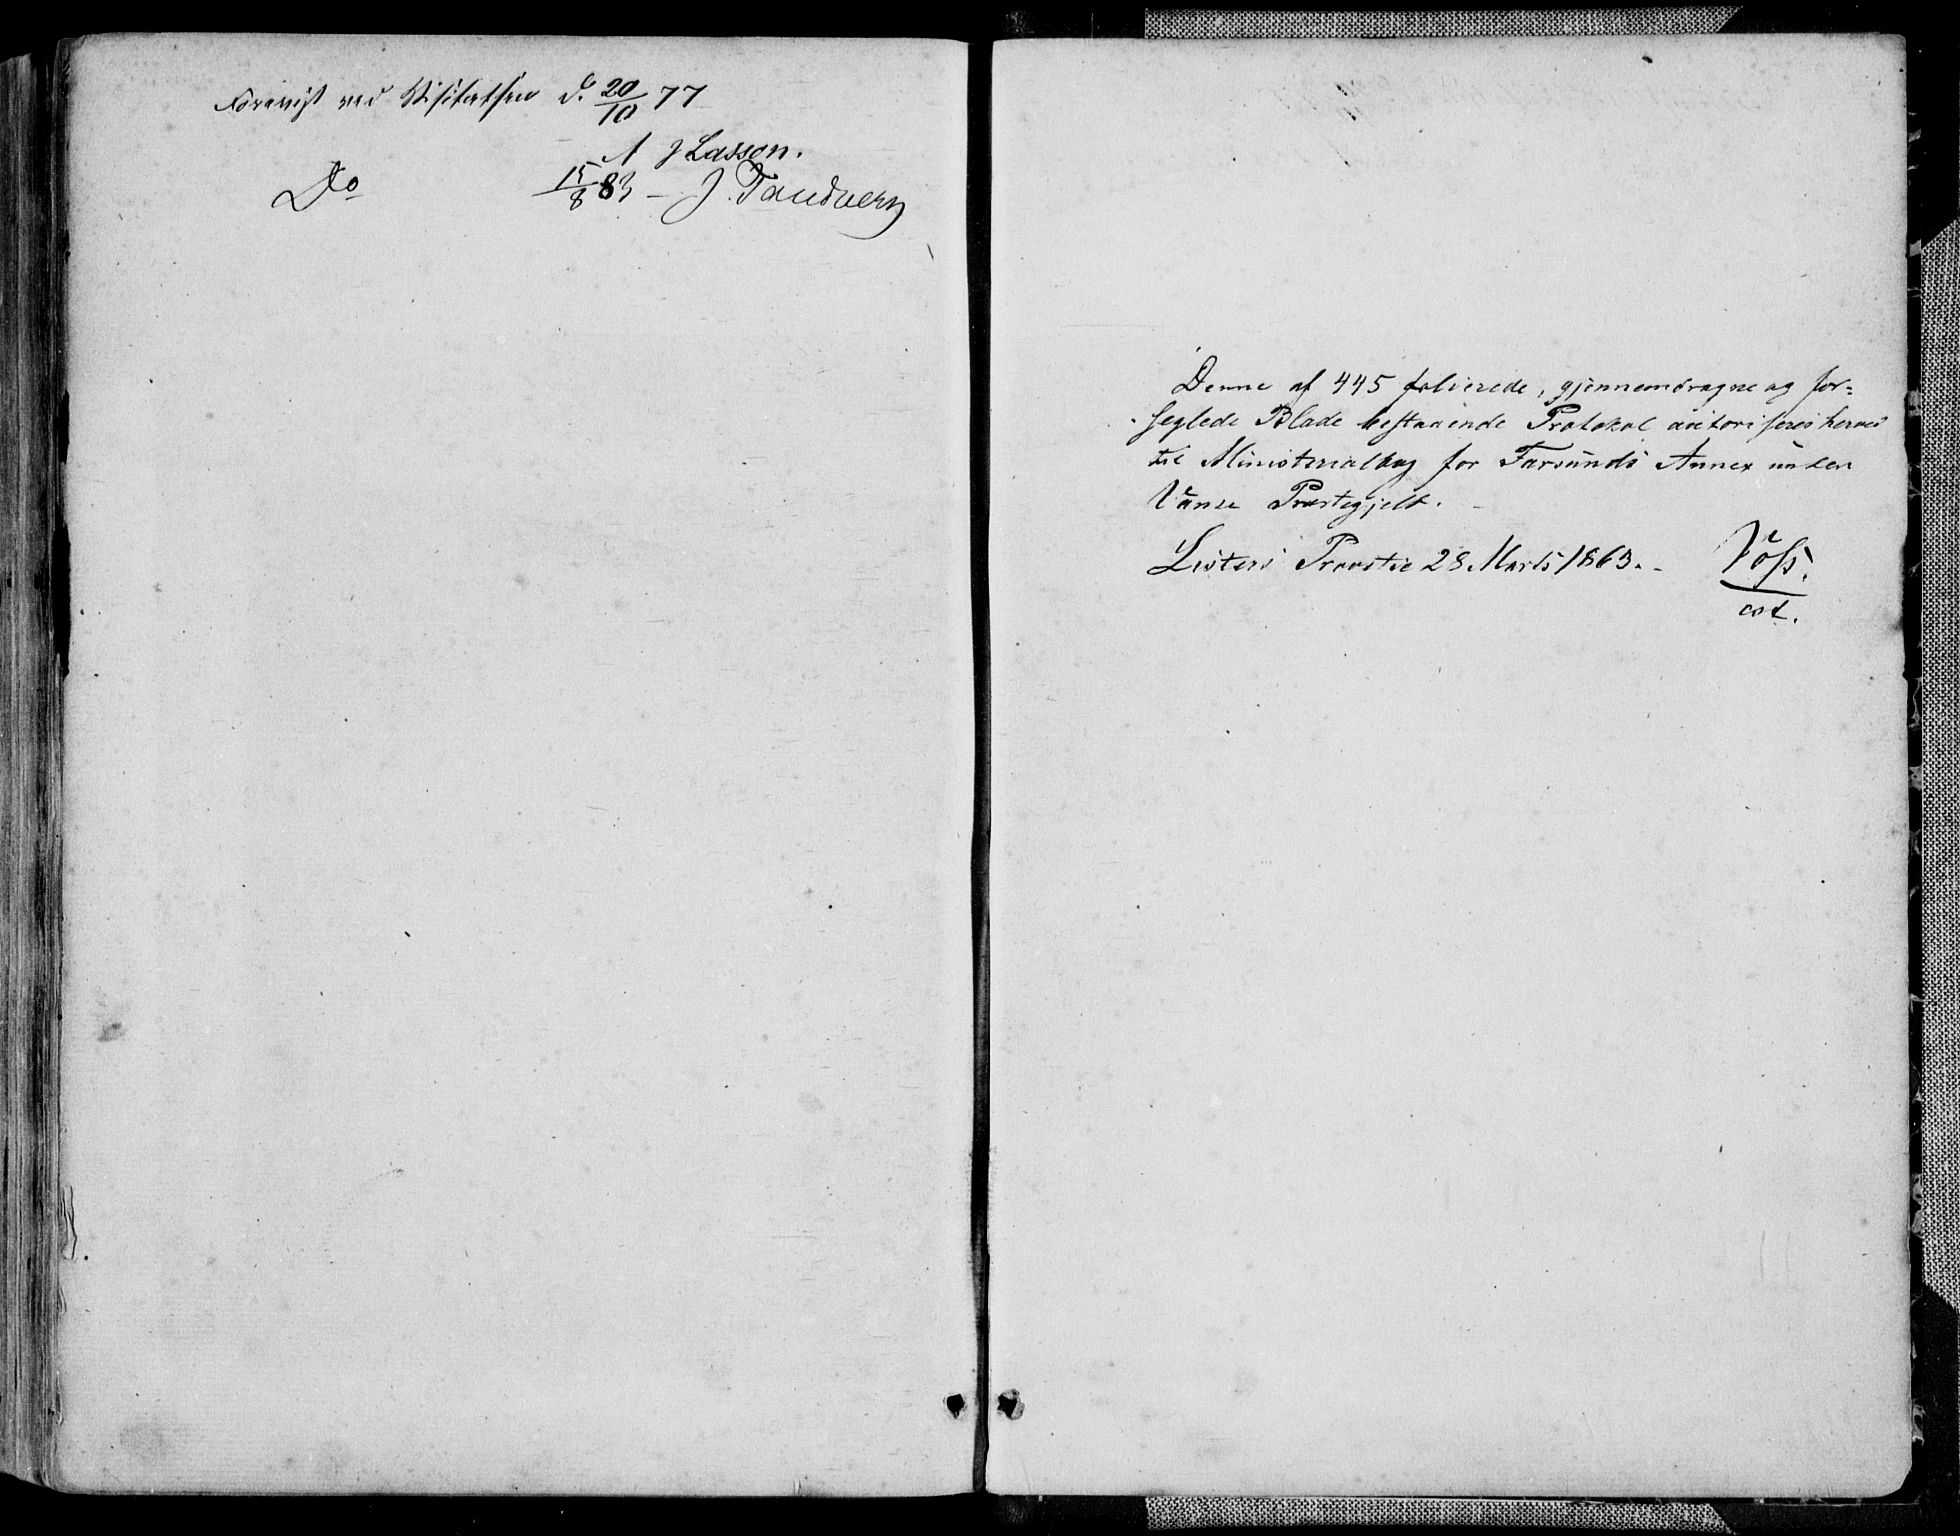 Forevist ved Visitatsen d. 20/10 77
A J Lasson.
Do 15/8 83 – J. Tandberg
Denne af 445 folierede, gjennemdragne og for=
seglede Blade bestaaende Protokol autoriseres herved
til Ministerialbog for Farsunds Annex under
Vanse Præstegjeld.
Listers Provstie 28 Marts 1863. Voss.
cst.